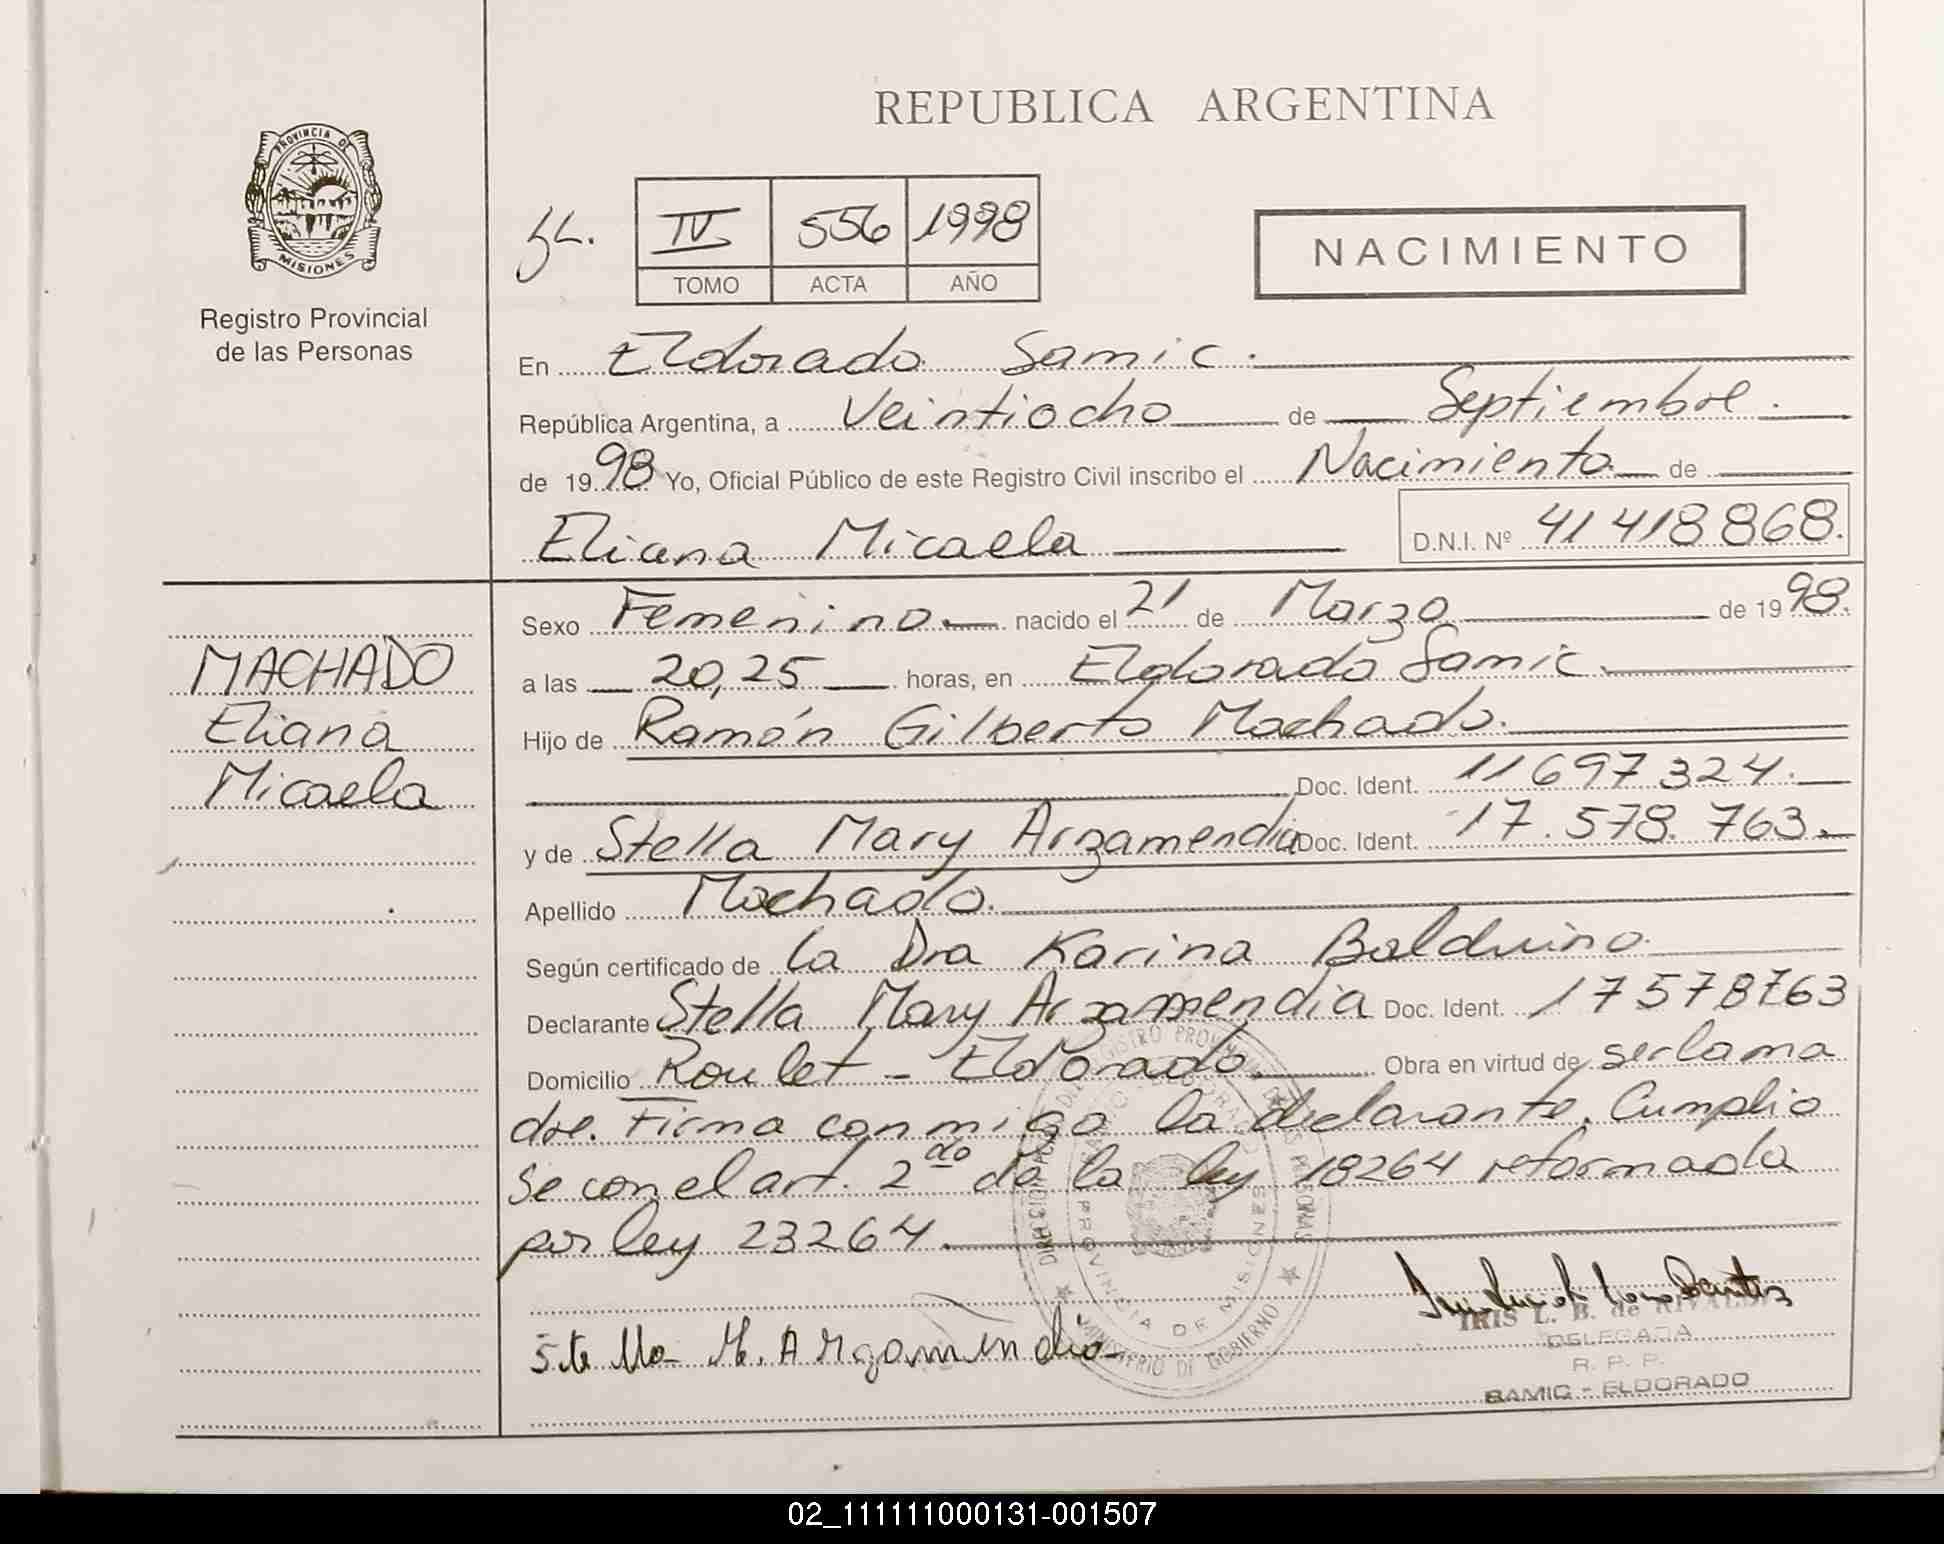 REPUBLICA ARGENTINA
PROVINCIA DE
MISIONES
Registro Provincial
de las Personas
IV 556 1998
TOMO ACTA AÑO
NACIMIENTO
En Eldorado Samic.
República Argentina, a Veintiocho de Septiembre.
de 1998 Yo, Oficial Público de este Registro Civil inscribo el Nacimiento de
Eliana Micaela D.N.I. Nº 41418868.
MACHADO
Eliana
Micaela
Sexo Femenino nacido el 21 de Marzo de 1998.
a las 20,25 horas, en Eldorado Samic.
Hijo de Ramón Gilberto Machado.
Doc. Ident. 11697324.
y de Stella Mary Arzamendia Doc. Ident. 17.578.763.
Apellido Machado.
Según certificado de la Dra Karina Balduino.
Declarante Stella Mary Arzamendia Doc. Ident. 17578763
Domicilio Roulet - Eldorado. Obra en virtud de ser la ma
dre. Firma conmigo la declarante. Cumplio
se con el art. 2do de la ley 18264 reformada
por ley 23264.
Stella M. Arzamendia
IRIS L. B. de RIVALDI
DELEGADA
R. P. P.
SAMIC - ELDORADO
PROVINCIA DE MISIONES
MINISTERIO DE GOBIERNO
02_111111000131-001507